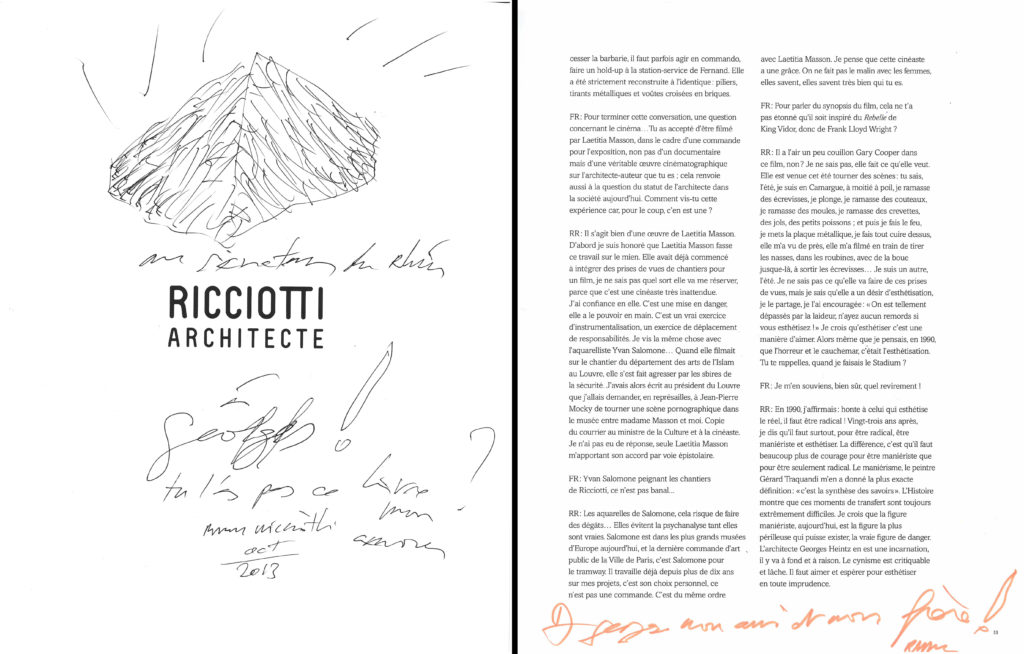 au sénateur du Rhin
RICCIOTTI
ARCHITECTE
à
Georges !
tu l'as pas ce livre ?
mon
Rudy Ricciotti
oct
2013
cesser la barbarie, il faut parfois agir en commando,
faire un hold-up à la station-service de Fernand. Elle
a été strictement reconstruite à l'identique : piliers,
tirants métalliques et voûtes croisées en briques.
FR : Pour terminer cette conversation, une question
concernant le cinéma… Tu as accepté d'être filmé
par Laetitia Masson, dans le cadre d'une commande
pour l'exposition, non pas d'un documentaire
mais d'une véritable œuvre cinématographique
sur l'architecte-auteur que tu es ; cela renvoie
aussi à la question du statut de l'architecte dans
la société aujourd'hui. Comment vis-tu cette
expérience car, pour le coup, c'en est une ?
RR : Il s'agit bien d'une œuvre de Laetitia Masson.
D'abord je suis honoré que Laetitia Masson fasse
ce travail sur le mien. Elle avait déjà commencé
à intégrer des prises de vues de chantiers pour
un film, je ne sais pas quel sort elle va me réserver,
parce que c'est une cinéaste très inattendue.
J'ai confiance en elle. C'est une mise en danger,
elle a le pouvoir en main. C'est un vrai exercice
d'instrumentalisation, un exercice de déplacement
de responsabilités. Je vis la même chose avec
l'aquarelliste Yvan Salomone… Quand elle filmait
sur le chantier du département des arts de l'Islam
au Louvre, elle s'est fait agresser par les sbires de
la sécurité. J'avais alors écrit au président du Louvre
que j'allais demander, en représailles, à Jean-Pierre
Mocky de tourner une scène pornographique dans
le musée entre madame Masson et moi. Copie
du courrier au ministre de la Culture et à la cinéaste.
Je n'ai pas eu de réponse, seule Laetitia Masson
m'apportant son accord par voie épistolaire.
FR : Yvan Salomone peignant les chantiers
de Ricciotti, ce n'est pas banal…
RR : Les aquarelles de Salomone, cela risque de faire
des dégâts… Elles évitent la psychanalyse tant elles
sont vraies. Salomone est dans les plus grands musées
d'Europe aujourd'hui, et la dernière commande d'art
public de la Ville de Paris, c'est Salomone pour
le tramway. Il travaille déjà depuis plus de dix ans
sur mes projets, c'est son choix personnel, ce
n'est pas une commande. C'est du même ordre
avec Laetitia Masson. Je pense que cette cinéaste
a une grâce. On ne fait pas le malin avec les femmes,
elles savent, elles savent très bien qui tu es.
FR : Pour parler du synopsis du film, cela ne t'a
pas étonné qu'il soit inspiré du Rebelle de
King Vidor, donc de Frank Lloyd Wright ?
RR : Il a l'air un peu couillon Gary Cooper dans
ce film, non ? Je ne sais pas, elle fait ce qu'elle veut.
Elle est venue cet été tourner des scènes : tu sais,
l'été, je suis en Camargue, à moitié à poil, je ramasse
des écrevisses, je plonge, je ramasse des couteaux,
je ramasse des moules, je ramasse des crevettes,
des jols, des petits poissons ; et puis je fais le feu,
je mets la plaque métallique, je fais tout cuire dessus,
elle m'a vu de près, elle m'a filmé en train de tirer
les nasses, dans les roubines, avec de la boue
jusque-là, à sortir les écrevisses… Je suis un autre,
l'été. Je ne sais pas ce qu'elle va faire de ces prises
de vues, mais je sais qu'elle a un désir d'esthétisation,
je le partage, je l'ai encouragée : « On est tellement
dépassés par la laideur, n'ayez aucun remords si
vous esthétisez ! » Je crois qu'esthétiser c'est une
manière d'aimer. Alors même que je pensais, en 1990,
que l'horreur et le cauchemar, c'était l'esthétisation.
Tu te rappelles, quand je faisais le Stadium ?
FR : Je m'en souviens, bien sûr, quel revirement !
RR : En 1990, j'affirmais : honte à celui qui esthétise
le réel, il faut être radical ! Vingt-trois ans après,
je dis qu'il faut surtout, pour être radical, être
maniériste et esthétiser. La différence, c'est qu'il faut
beaucoup plus de courage pour être maniériste que
pour être seulement radical. Le maniérisme, le peintre
Gérard Traquandi m'en a donné la plus exacte
définition : « c'est la synthèse des savoirs ». L'Histoire
montre que ces moments de transfert sont toujours
extrêmement difficiles. Je crois que la figure
maniériste, aujourd'hui, est la figure la plus
périlleuse qui puisse exister, la vraie figure de danger.
L'architecte Georges Heintz en est une incarnation,
il y va à fond et à raison. Le cynisme est critiquable
et lâche. Il faut aimer et espérer pour esthétiser
en toute imprudence.
à Georges mon ami et mon frère !
Rudy
33